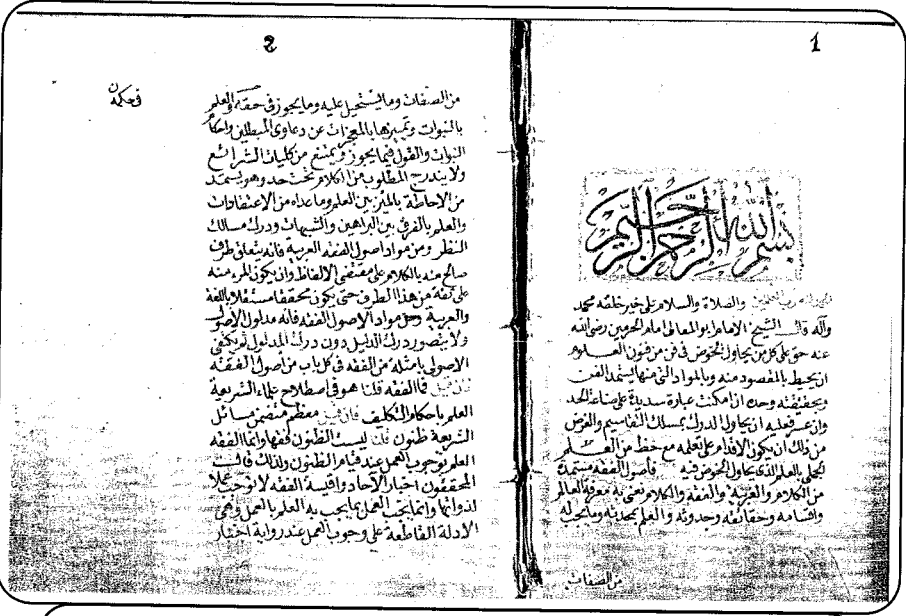 1
بسم الله الرحمن الرحيم
رب العالمين والصلاة والسلام على خير خلقه محمد
وآله قال الشيخ الامام ابو المعالي امام الحرمين رضي الله
عنه حق على كل من يحاول الخوض في فن من فنون العلوم
ان يحيط بالمقصود منه وبالمواد التي منها يستمد الفن
وبحقيقته وحده ان امكنت عبارة سديدة على صناعة الحد
وان عسر فعليه ان يحاول الدرك بمسلك التقاسيم والغرض
من ذلك ان يكون الاقدام على تعلمه مع حظ من العلم
الجملي بالعلم الذي يحاول الخوض فيه فاصول الفقه مستمدة
من الكلام والعربية والفقه والكلام نعني به معرفة العالم
واقسامه وحقائقه وحدوثه والعلم بمحدثه وما يجب له
من الصفات
2
من الصفات وما يستحيل عليه وما يجوز في حقه والعلم
بالنبوات وتمييزها بالمعجزات عن دعاوى المبطلين واحكام
النبوات والقول فيما يجوز ويمتنع من كليات الشرائع
ولا يندرج المطلوب من الكلام تحت حد وهو يستمد
من الاحاطة بالميز بين العلم وما عداه من الاعتقادات
والعلم بالفرق بين البراهين والشبهات ودرك مسالك
النظر ومن مواد اصول الفقه العربية فانه يتعلق طرف
صالح منه بالكلام على مقتضى الالفاظ وان يكون المرء منه
على ثقة من هذا الطرف حتى يكون محققا مستقلا باللغة
والعربية ومن مواد الاصول الفقه فانه مدلول الاصول
ولا يتصور درك الدليل دون درك المدلول ثم يكتفي
الاصولي بامثلة من الفقه في كل باب من اصول الفقه
فان قيل فما الفقه قلنا هو في اصطلاح علماء الشريعة
العلم باحكام التكليف فان قيل معظم متضمن مسائل
الشريعة ظنون قلنا ليست الظنون فقها وانما الفقه
العلم بوجوب العمل عند قيام الظنون ولذلك قالت
المحققون اخبار الآحاد واقيسة الفقه لا توجب عملا
لذواتها وانما يجب العمل بما يجب به العلم بالعمل وهي
الادلة القاطعة على وجوب العمل عند رواية اخبار